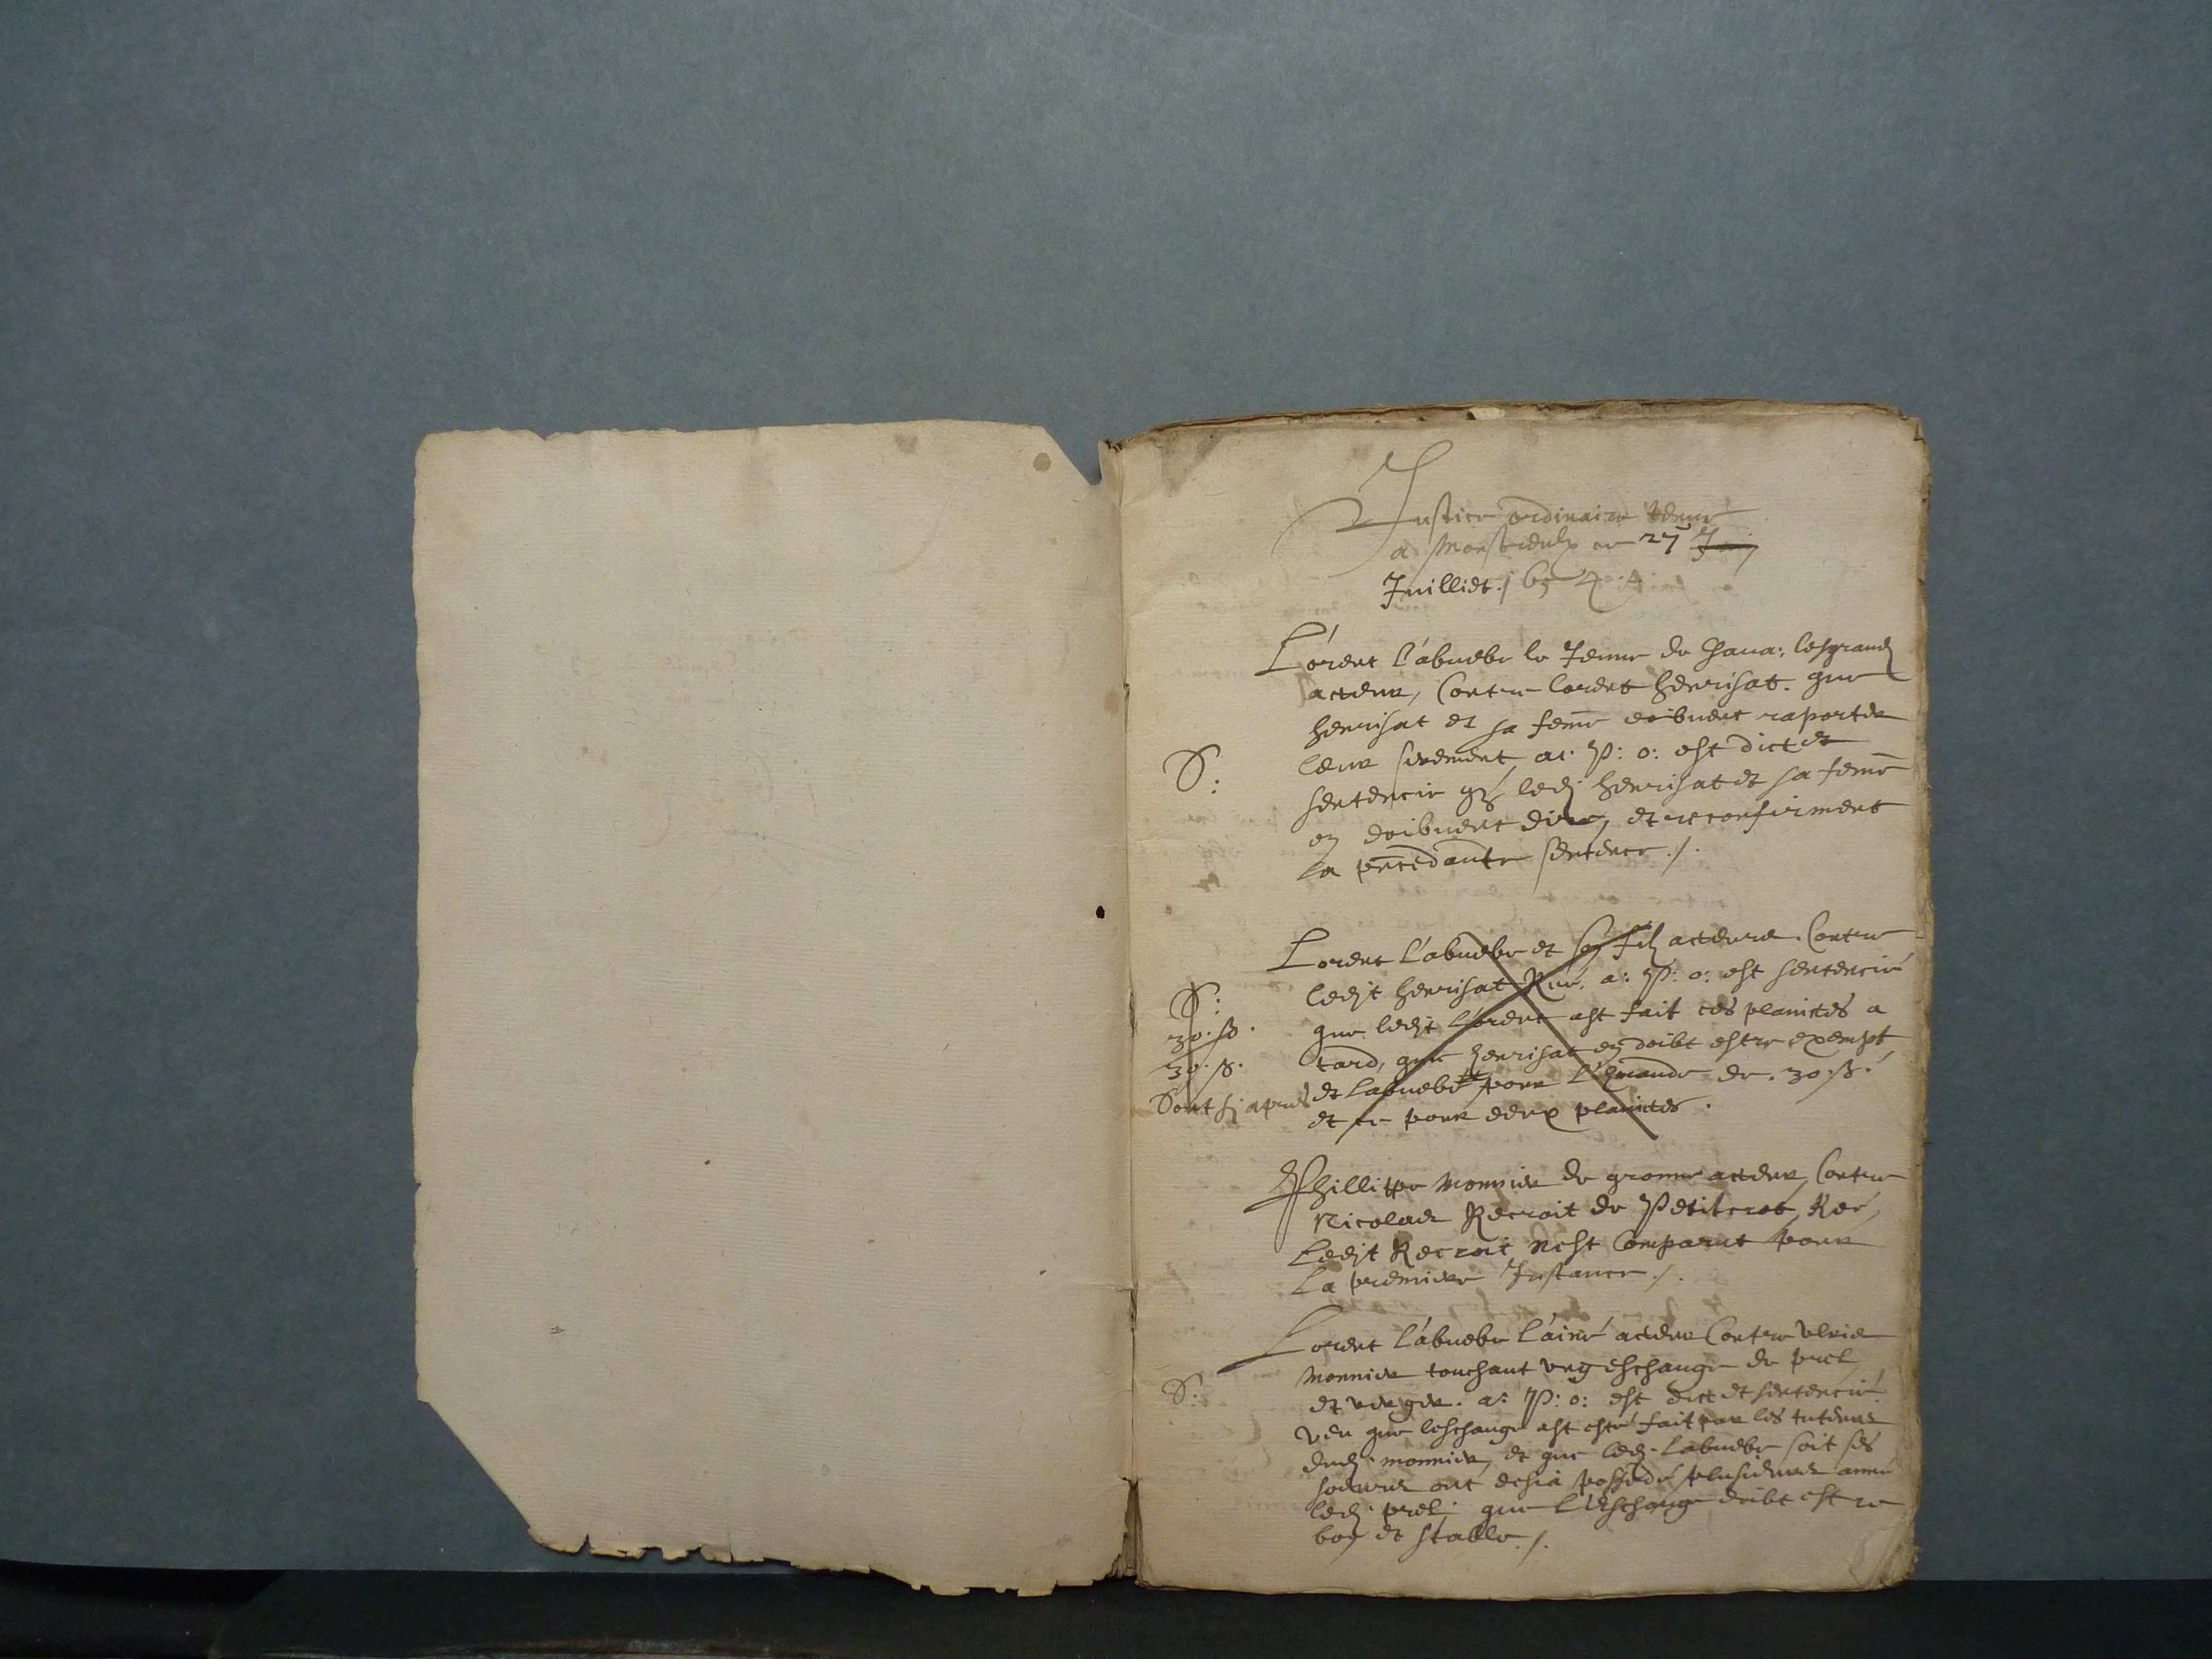 Justice ordinaire tenue
a Monstreulx ce 27 Juin
Juilliet . / 1654
Lorent l'abuebe le Jeune de Paua: lesgrandz
acteur, Contre lorent henrisat. que
henrisat et sa feme doibuent raporter
leur serement, a: P: o: est dict et
S:
sentencie q3 led: henrisat et sa feme
en doibuent dire, et reconfirment
la precedante sentence ./.
Lorent l'abuebe et son filz acteurs. Contre
ledit henrisat Reé. a: P: o: est sentencié
S:
30. ß.
que ledit Lorent ast fait ces plainctes a
30. ß.
tard, que henrisat en doibt estre exempt,
Sont sj apres
et labuebe est pour l'emande de. 30. ß.
et ce pour deux plainctes .
Phillippe Monnier de gronne acteur, Contre
Nicolas Recroit de Petitcrot, Reé,
Ledit Recroit nest Comparut pour
la premiere Instance ./.
Lorent l'abuebe l'ainé acteur Contre Vlrie
Monnier touchant vng eschange de prel
S:
et vergier. a: P: o: est dict et sentencié
veu que leschange ast esté fait par les tuteurs
dud: monnier, et que led: labuebe soit ses
soeurs ont desia possedé plusieurs anné
led: prel; que l'eschange doibt estre
bon et stable ./.